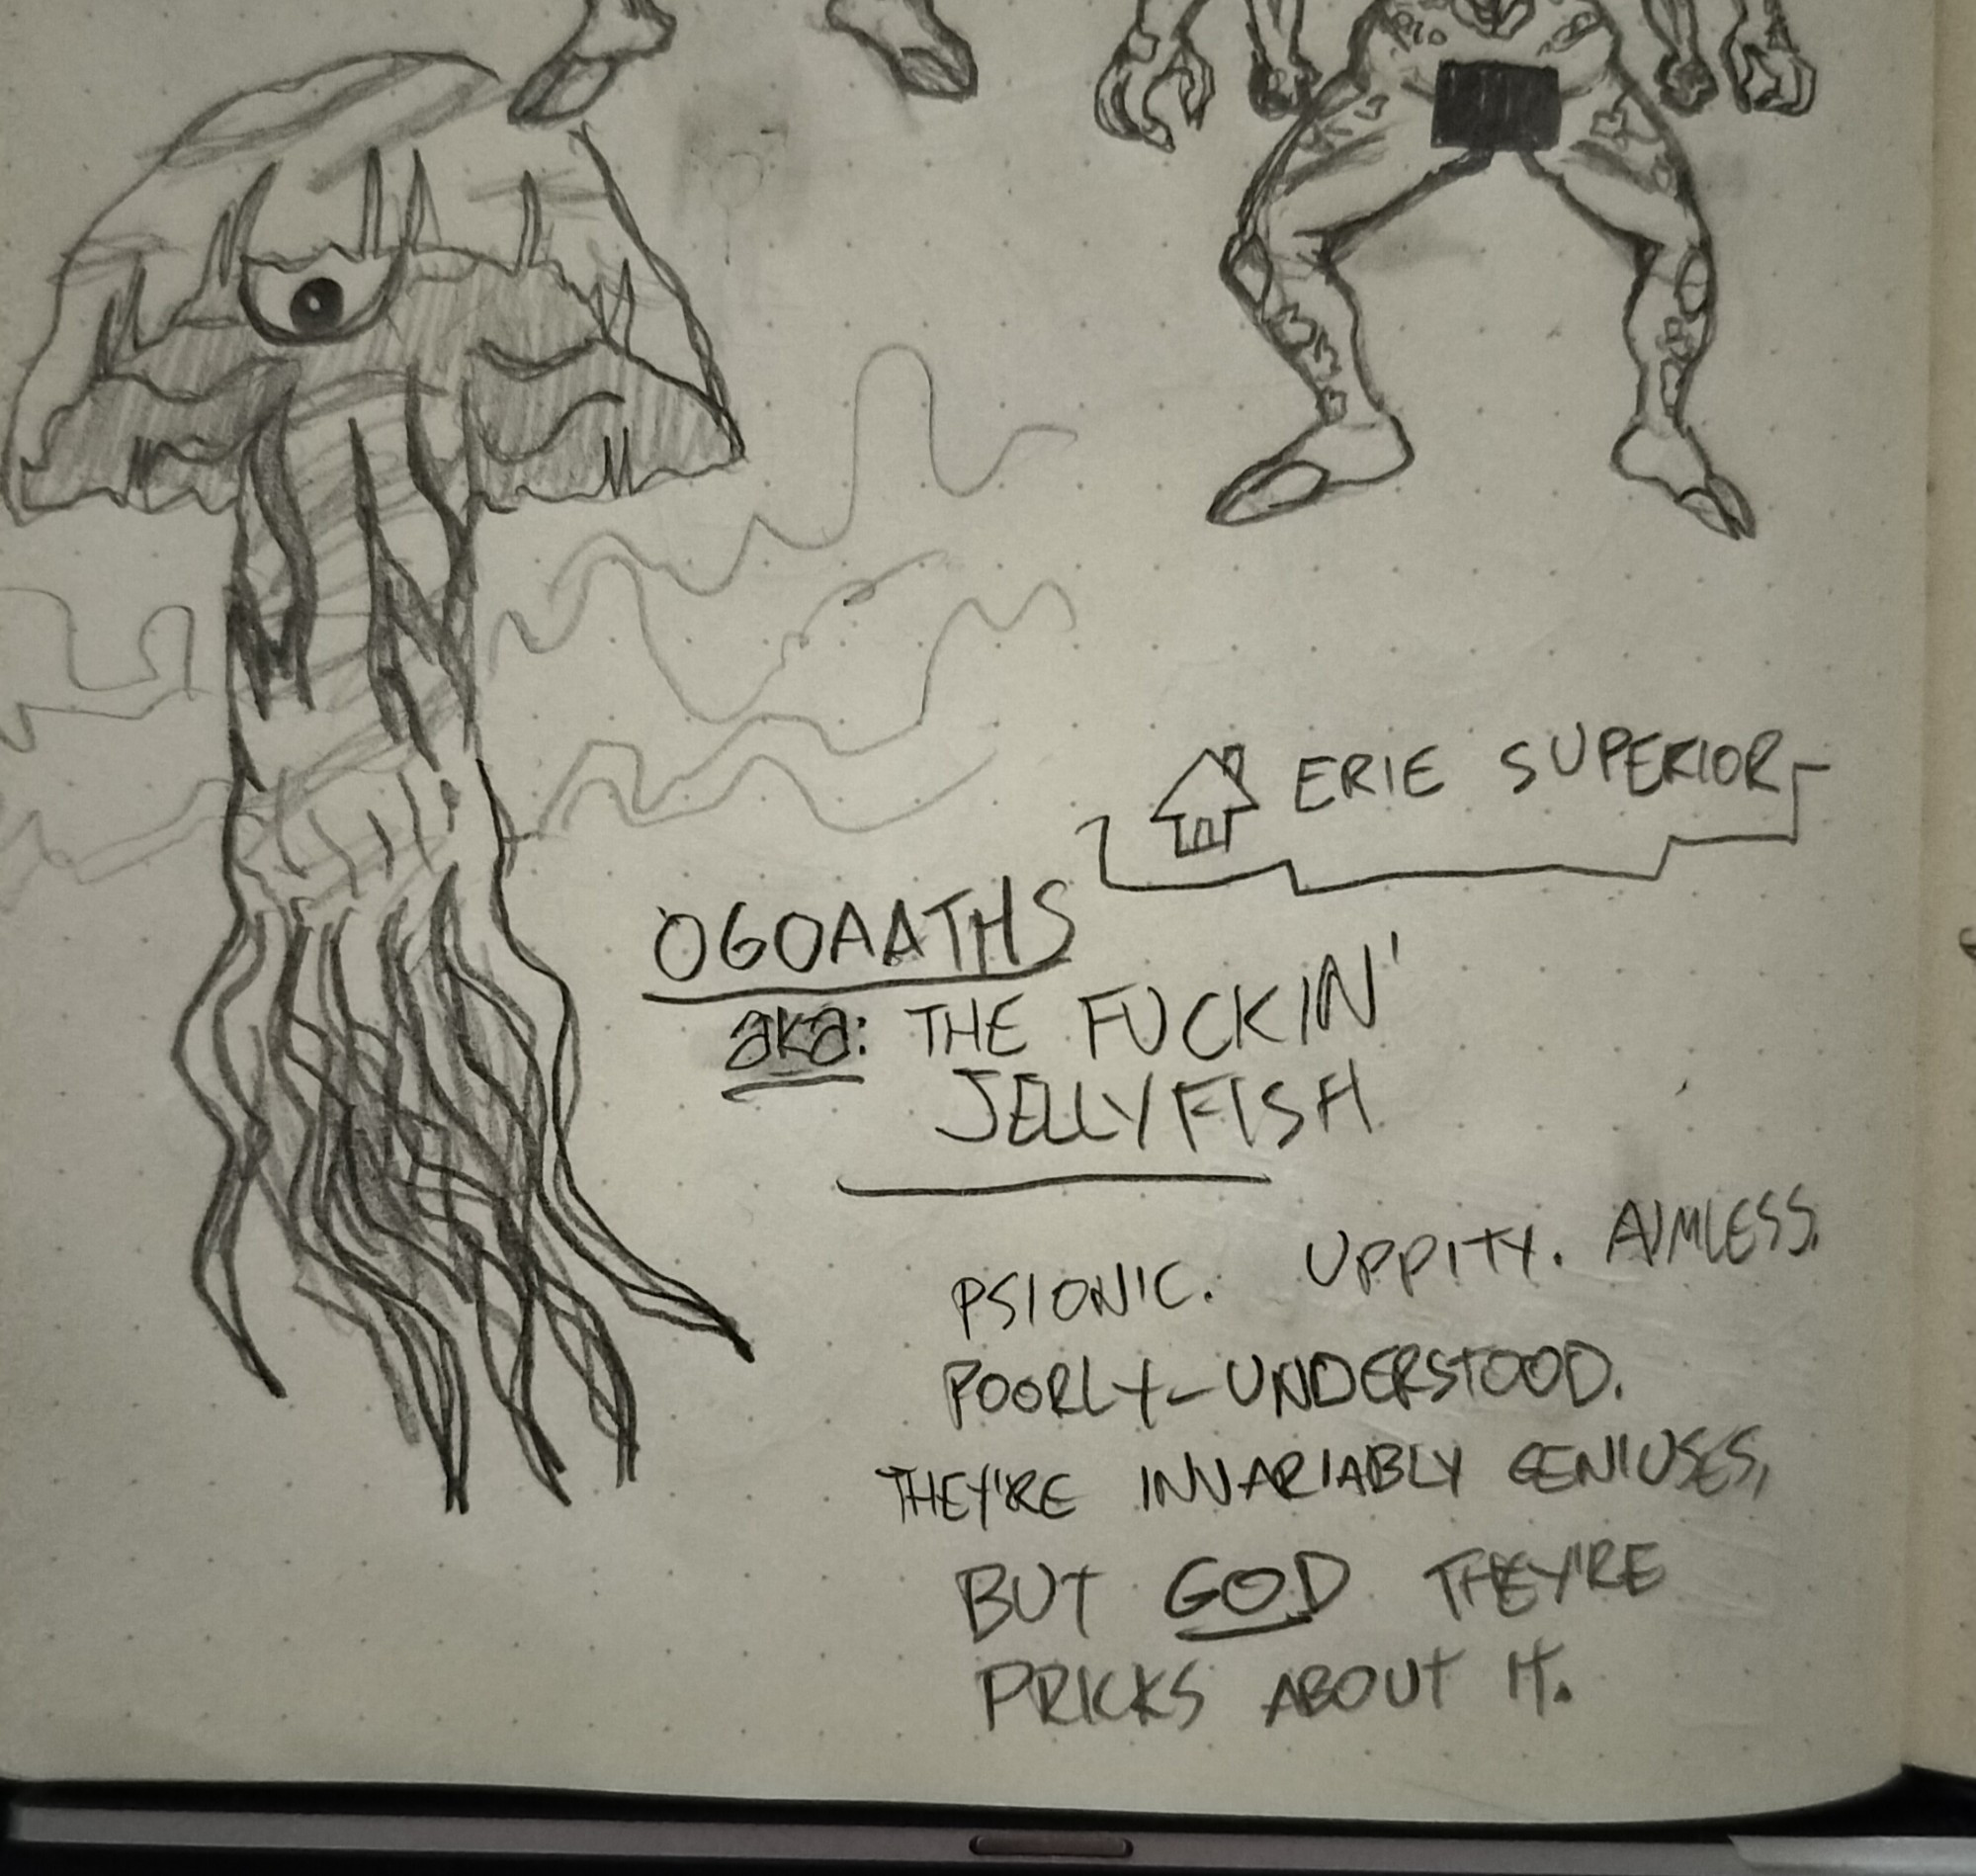 ERIE SUPERIOR
OGOAATHS
aka: THE FUCKIN'
JELLYFISH
PSIONIC. UPPITY. AIMLESS.
POORLY-UNDERSTOOD.
THEY'RE INVARIABLY GENIUSES,
BUT GOD THEY'RE
PRICKS ABOUT IT.